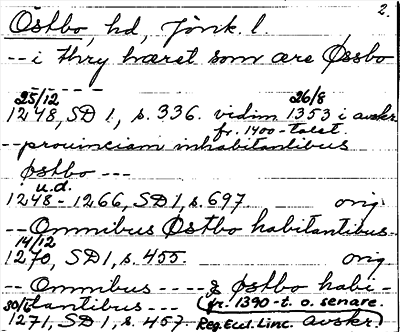 2.
Östbo, hd, Jönk. l.
-- i thry hæret som ære Øssbo
-- -- -- --
25/12 26/8
1248, SD 1, s. 336. vidim 1353 i avskr.
fr. 1400-talet
-- prouinciam inhabitantibus
Østbo ---
u.d.
1248-1266, SD 1, s. 697. orig.
-- Omnibus Østbo habitantibus --
14/12
1270, SD 1, s. 455. orig
-- Omnibus ---- Østbo habi-
30/6 tantibus --- (fr. 1390-t. o. senare.
1271, SD 1, s. 457. Reg. Eccl. Linc. avskr)